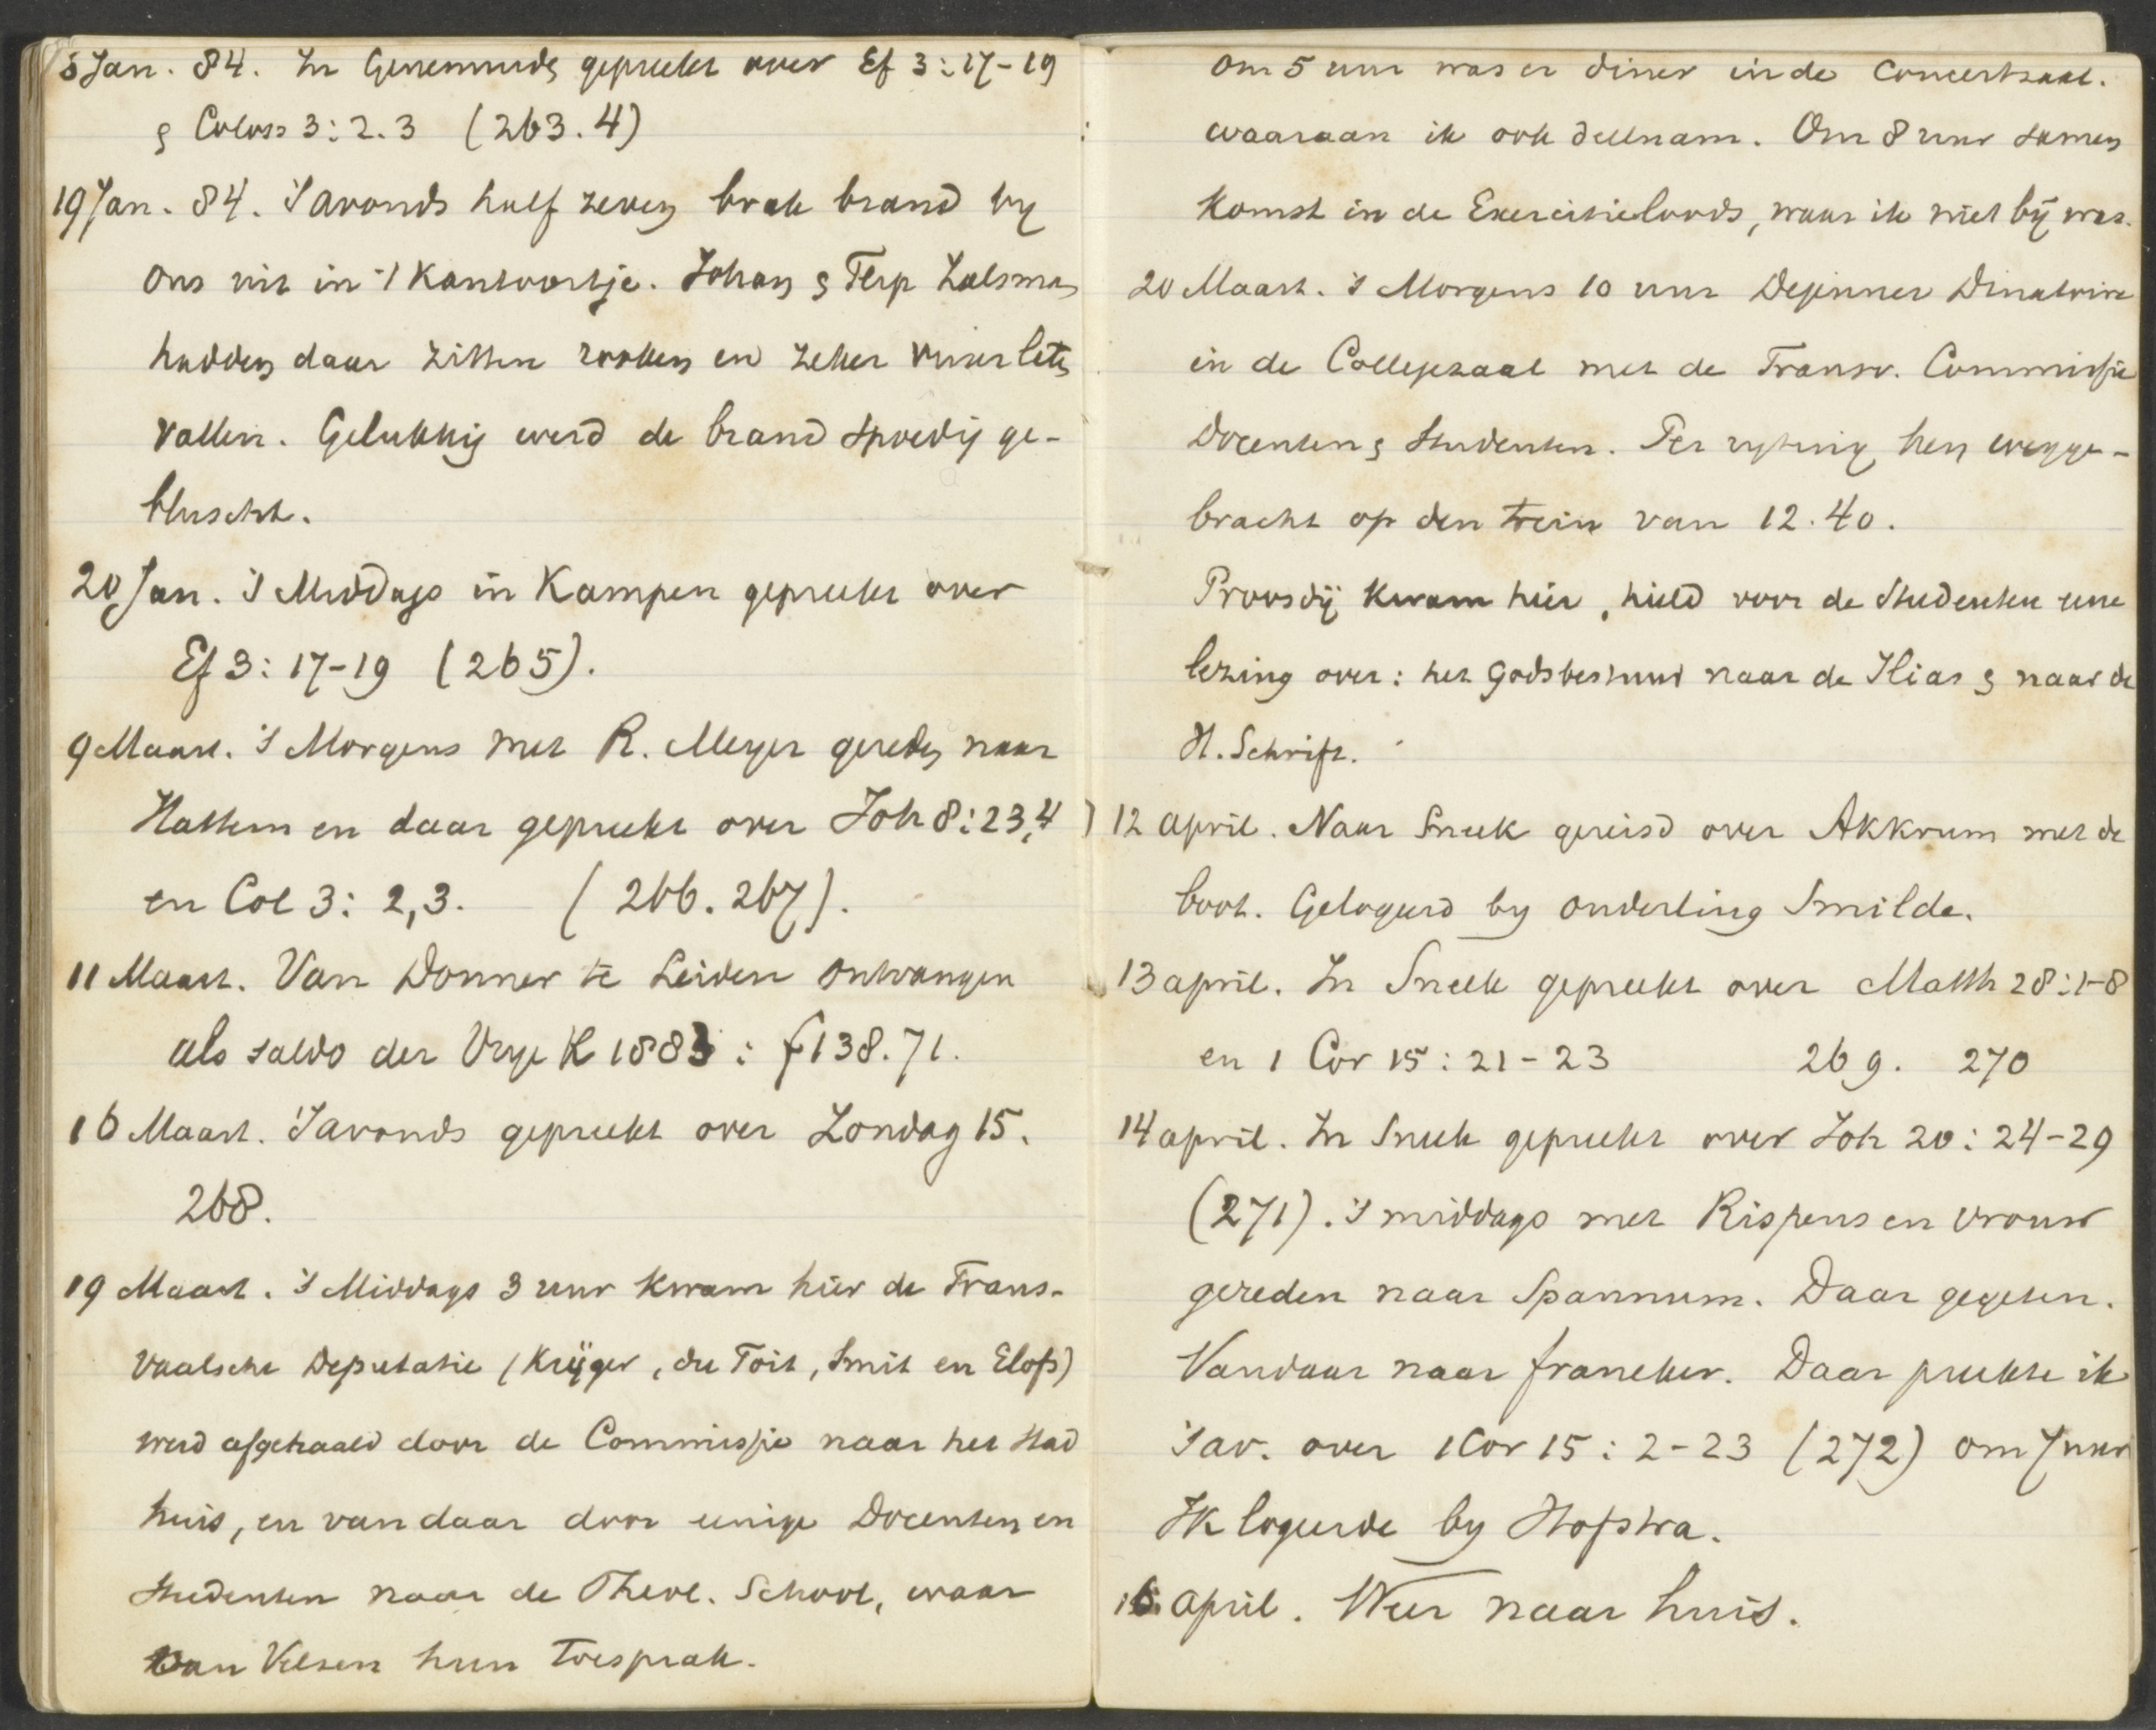 6 Jan. 84. In Genemuiden gepreekt over Ef 3:17-19
& Coloss 3:2.3 (263.4)
19 Jan. 84. 's avonds half zeven brak brand by
ons uit in 't Kantoortje. Johan & Flip Zalsman
hadden daar zitten rooken en zeker vuur laten
vallen. Gelukkig werd de brand spoedig ge-
bluscht.
20 Jan. 's Middags in Kampen gepreekt over
Ef 3:17-19 (265).
9 Maart. 's Morgens met R. Meyer gereden naar
Hattem en daar gepreekt over Joh 8:23,4
en Col 3: 2,3. (266.267).
11 Maart. Van Donner te Leiden ontvangen
als saldo der Vrye K 1883: f138.71.
16 Maart. 's avonds gepreekt over Zondag 15.
268.
19 Maart. 's Middags 3 uur kwam hier de Trans-
vaalsche Deputatie (Krüger, du Toit, Smit en Eloff)
werd afgehaald door de Commissie naar het Stad
huis, en van daar door eenige Docenten en
Studenten naar de Theol. School, waar
van Velzen hun toesprak.
Om 5 uur was er diner in de Concertzaal.
waaraan ik ook deelnam. Om 8 uur samen
komst in de Exercitieloods, waar ik niet bij was.
20 Maart. 's Morgens 10 uur Dejeuner Dinatoire
in de Collegezaal met de Transv. Commissie
Docenten & Studenten. Per rytuig hen wegge-
bracht op den trein van 12.40.
Proosdij kwam hier, hield voor de Studenten eene
lezing over: het Godsbestuur naar de Ilias & naar de
H. Schrift.
12 april. Naar Sneek gereisd over Akkrum met de
boot. Gelogeerd by ouderling Smilde.
13 april. In Sneek gepreekt over Matth 28:1-8
en 1 Cor 15:21-23 269. 270
14 april. In Sneek gepreekt over Joh 20:24-29
(271). 's middags met Rispens en vrouw
gereden naar Spannum. Daar gegeten.
Vandaar naar franeker. Daar preekte ik
's av. over 1 Cor 15:2-23 (272) om 7 uur
Ik logeerde by Hofstra.
16 april. Weer naar huis.